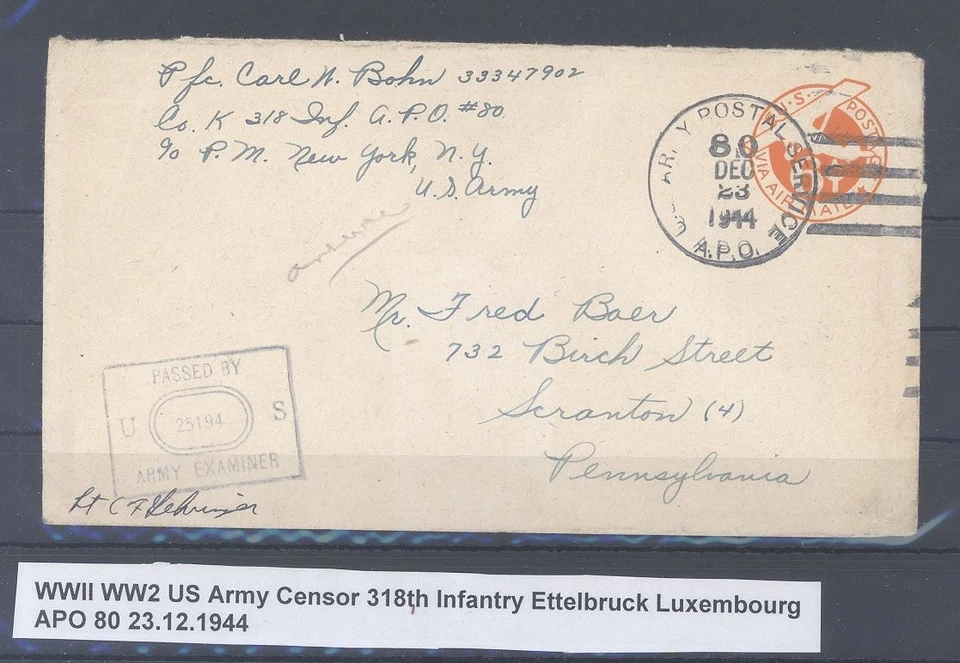 Pfc. Carl N. Bohn 33347902
Co. K 318 Inf. A.P.O. #80
c/o P.M. New York, N.Y.
U.S. Army
U.S. ARMY POSTAL SERVICE
80
DEC
23
1944
A.P.O.
U.S. POSTAGE
VIA AIR MAIL
6¢
Mr. Fred Baer
732 Birch Street
Scranton (4)
Pennsylvania
PASSED BY
U 25194 S
ARMY EXAMINER
Lt C F
WWII WW2 US Army Censor 318th Infantry Ettelbruck Luxembourg
APO 80 23.12.1944